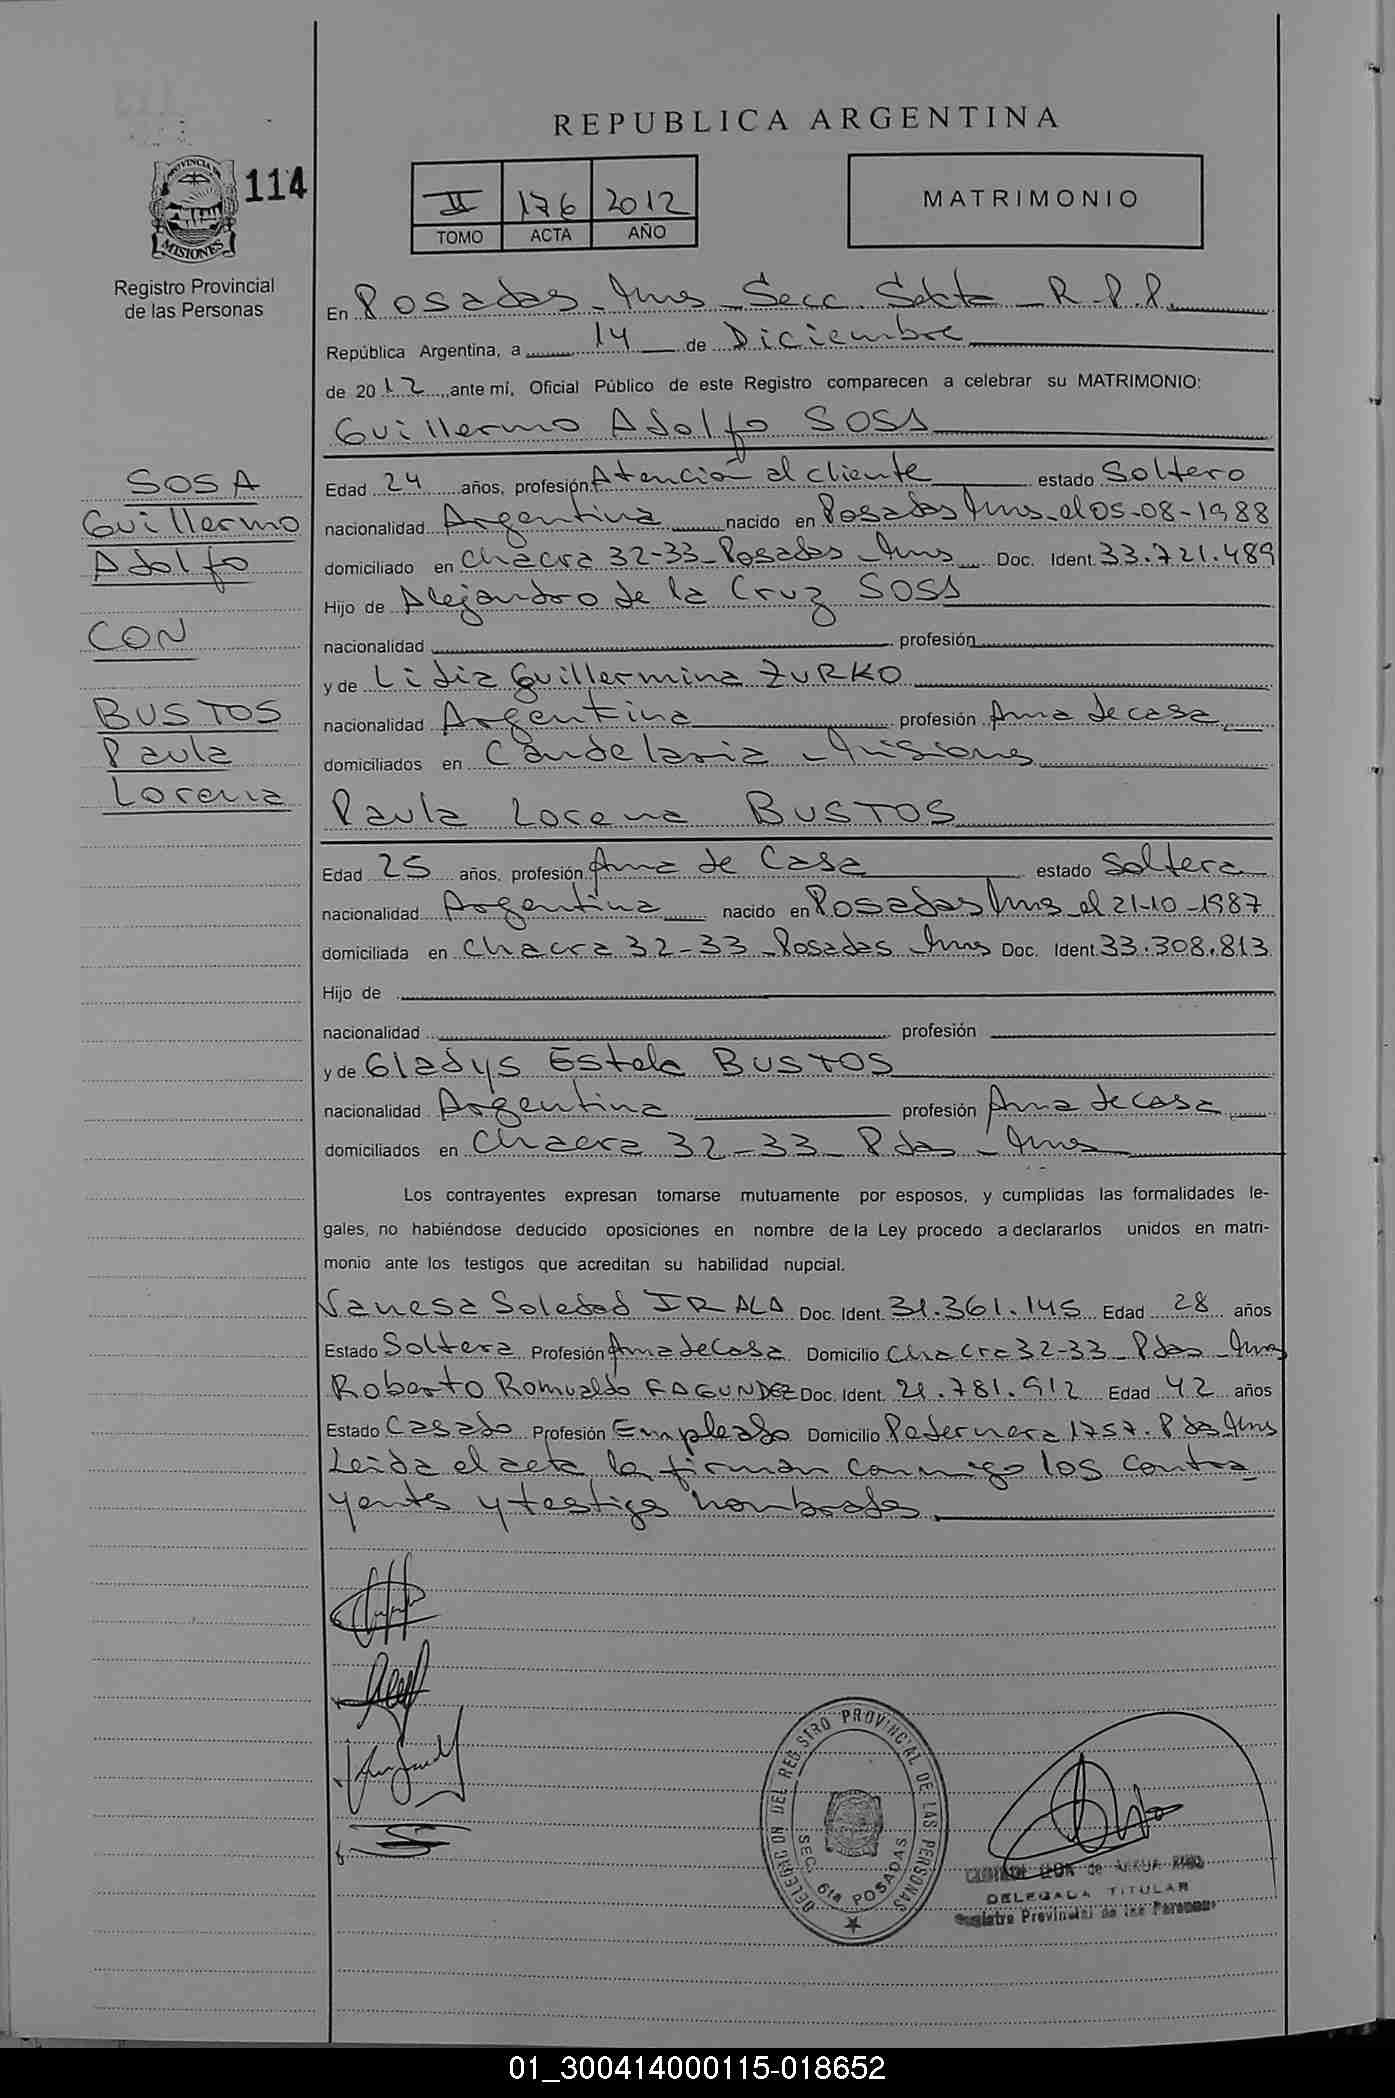 REPUBLICA ARGENTINA
PROVINCIA DE
MISIONES
114
Registro Provincial
de las Personas
II 176 2012
TOMO ACTA AÑO
MATRIMONIO
En Posadas - Mnes - Secc. Sexta - R.P.P.
República Argentina, a 14 de Diciembre
de 2012, ante mí, Oficial Público de este Registro comparecen a celebrar su MATRIMONIO:
Guillermo Adolfo SOSA
SOSA
Guillermo
Adolfo
CON
BUSTOS
Paula
Lorena
Edad 24 años, profesión Atención al cliente estado Soltero
nacionalidad Argentina nacido en Posadas Mnes - el 05-08-1988
domiciliado en Chacra 32-33 - Posadas - Mnes Doc. Ident. 33.721.489
Hijo de Alejandro de la Cruz SOSA
nacionalidad profesión
y de Lidia Guillermina ZURKO
nacionalidad Argentina profesión Ama de casa
domiciliados en Candelaria - Misiones
Paula Lorena BUSTOS
Edad 25 años, profesión Ama de Casa estado Soltera
nacionalidad Argentina nacido en Posadas Mnes - el 21-10-1987
domiciliada en Chacra 32-33 - Posadas - Mnes Doc. Ident. 33.308.813
Hijo de
nacionalidad profesión
y de Gladys Estela BUSTOS
nacionalidad Argentina profesión Ama de casa
domiciliados en Chacra 32-33 - Pdas - Mnes
Los contrayentes expresan tomarse mutuamente por esposos, y cumplidas las formalidades le-
gales, no habiéndose deducido oposiciones en nombre de la Ley procedo a declararlos unidos en matri-
monio ante los testigos que acreditan su habilidad nupcial.
Vanesa Soledad IRALA Doc. Ident. 31.361.145 Edad 28 años
Estado Soltera Profesión Ama de Casa Domicilio Chacra 32-33 - Pdas - Mnes
Roberto Romualdo FAGUNDEZ Doc. Ident. 21.781.912 Edad 42 años
Estado Casado Profesión Empleado Domicilio Padernera 1757 - Pdas Mnes
Leida el acta, la firman conmigo los contra
yentes y testigos nombrados.
DELEGACION DEL REGISTRO PROVINCIAL DE LAS PERSONAS
SEC. 6ta POSADAS
DELEGADA TITULAR
Registro Provincial de las Personas
01_300414000115-018652